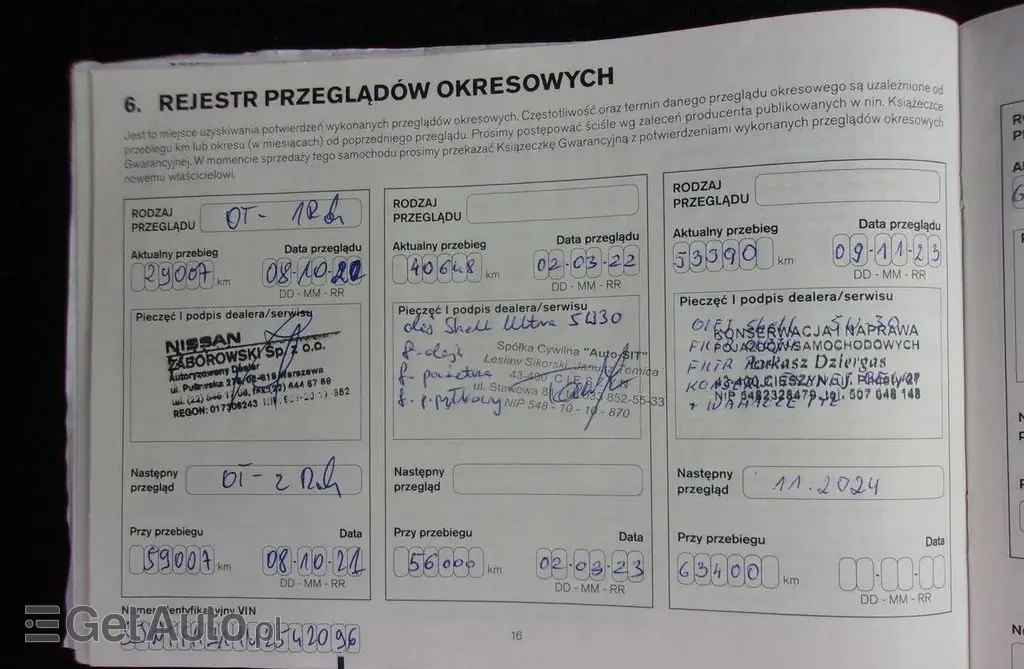 6. REJESTR PRZEGLĄDÓW OKRESOWYCH
Jest to miejsce uzyskiwania potwierdzeń wykonanych przeglądów okresowych. Częstotliwość oraz termin danego przeglądu okresowego są uzależnione od
przebiegu km lub okresu (w miesiącach) od poprzedniego przeglądu. Prosimy postępować ściśle wg zaleceń producenta publikowanych w nin. Książeczce
Gwarancyjnej. W momencie sprzedaży tego samochodu prosimy przekazać Książeczkę Gwarancyjną z potwierdzeniami wykonanych przeglądów okresowych
nowemu właścicielowi.
RODZAJ PRZEGLĄDU OT - 1Rok
Aktualny przebieg Data przeglądu
29007 km 08-10-20
DD - MM - RR
Pieczęć i podpis dealera/serwisu
NISSAN
ZABOROWSKI Sp. z o.o.
Autoryzowany Dealer
Warszawa
REGON: 017306243
Następny przegląd OT - 2 Rok
Przy przebiegu Data
59007 km 08-10-21
DD - MM - RR
RODZAJ PRZEGLĄDU
Aktualny przebieg Data przeglądu
40648 km 02-03-22
DD - MM - RR
Pieczęć i podpis dealera/serwisu
olej Shell Ultra 5W30
Spółka Cywilna "Auto-SIT"
f-oleju
Lesław Sikorski, Janusz Tomica
f-powietrza
43-400 CIESZYN
ul. Stawowa 852-55-33
f. p.pyłkowy
NIP 548 - 10 - 10 - 870
Następny przegląd
Przy przebiegu Data
56000 km 02-03-23
DD - MM - RR
RODZAJ PRZEGLĄDU
Aktualny przebieg Data przeglądu
53390 km 09-11-23
DD - MM - RR
Pieczęć i podpis dealera/serwisu
OLEJ Shell 5W-30
KONSERWACJA I NAPRAWA
POJAZDÓW SAMOCHODOWYCH
Arkasz Dziergas
43-400 CIESZYN
NIP 5482328479 tel. 507 048 148
Następny przegląd 11.2024
Przy przebiegu Data
63400 km
DD - MM - RR
Numer identyfikacyjny VIN
GetAuto.pl
16